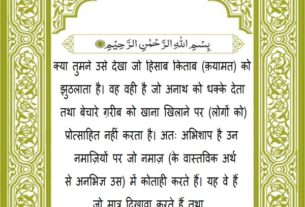 بِسْمِ اللهِ الرَّحْمٰنِ الرَّحِيْمِ
क्या तुमने उसे देखा जो हिसाब किताब (क़यामत) को
झुठलाता है। वह वही है जो अनाथ को धक्के देता
तथा बेचारे ग़रीब को खाना खिलाने पर (लोगों को)
प्रोत्साहित नहीं करता है। अतः अभिशाप है उन
नमाज़ियों पर जो नमाज़ (के वास्तविक अर्थ
से अनभिज्ञ उस) में कोताही करते हैं। यह वे हैं
जो मात्र दिखावा करते हैं तथा